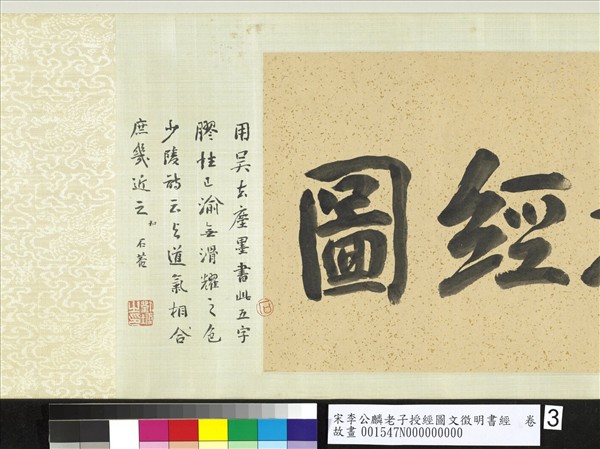 經圖
用吳去塵墨書此五字
膠性已渝無滑耀之色
少陵詩云与道氣相合
庶幾近之 石菴
劉墉之印
宋李公麟老子授經圖文徵明書經 卷
故畫001547N000000000
3